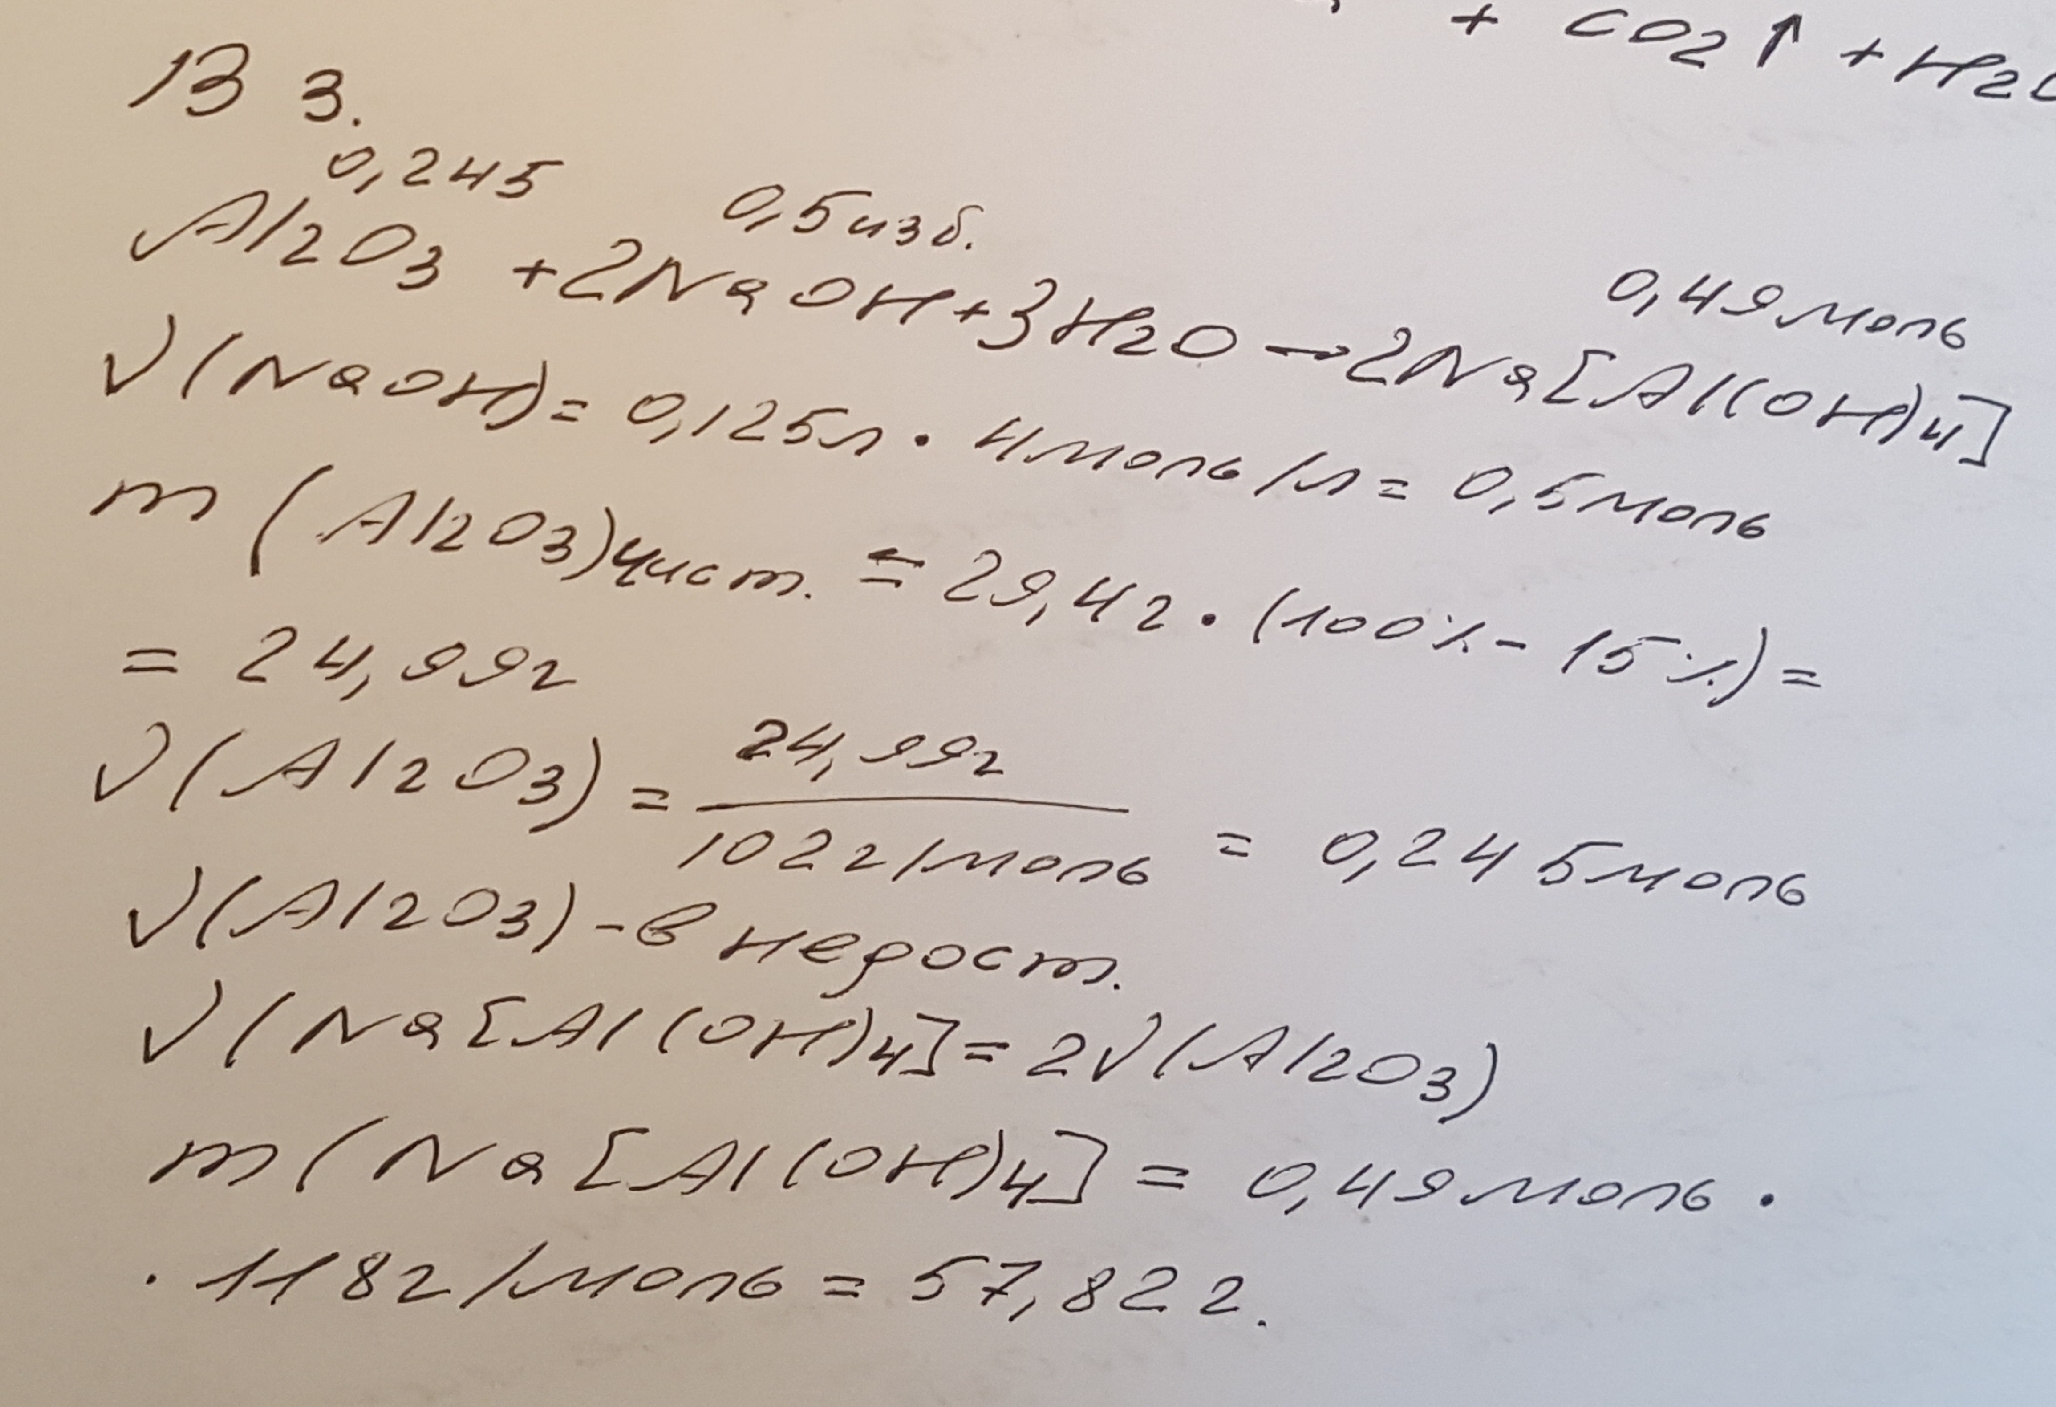 + CO2↑ + H2O
13 з.
0,245 0,5 изб. 0,49 моль
Al2O3 + 2NaOH + 3H2O → 2Na[Al(OH)4]
ν(NaOH) = 0,125л · 4моль/л = 0,5моль
m(Al2O3)чист. = 29,4г · (100% - 15%) =
= 24,99г
ν(Al2O3) = 24,99г / 102г/моль = 0,245моль
ν(Al2O3) - в недост.
ν(Na[Al(OH)4] = 2ν(Al2O3)
m(Na[Al(OH)4] = 0,49моль ·
· 118г/моль = 57,82г.